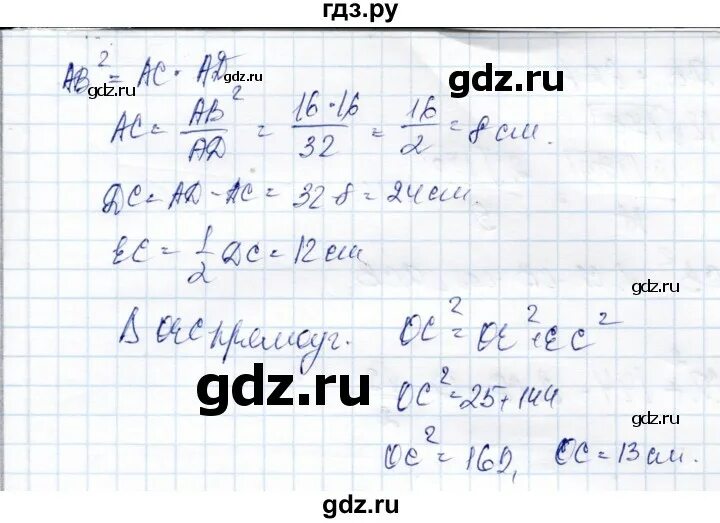 гдз.ру
AB² = AC · AD
gdz.ru gdz.ru
AC = AB²/AD = 16·16/32 = 16/2 = 8 см.
gdz.ru
DC = AD - AC = 32-8 = 24 см.
EC = 1/2 DC = 12 см
gdz.ru
В OEC прямоуг. OC² = OE² + EC²
gdz.ru
OC² = 25+144
gdz.ru
OC² = 169, OC = 13 см.
gdz.ru
gdz.ru